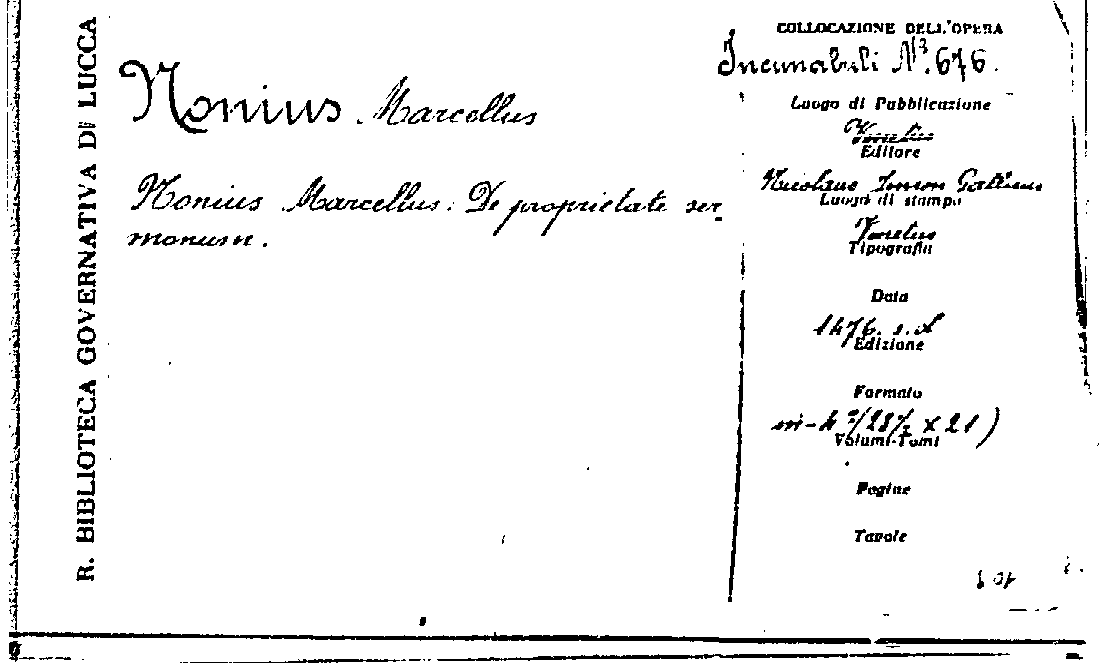 R. BIBLIOTECA GOVERNATIVA DI LUCCA
Nonius Marcellus
Nonius Marcellus. De proprietate ser-
monum.
COLLOCAZIONE DELL'OPERA
Incunabuli N.º 676.
Luogo di Pubblicazione
Venetiis
Editore
Nicolaus Jenson Gallicus
Luogo di stampa
Venetiis
Tipografia
Data
1476.
Edizione
Formato
in-4º (28½ x 21)
Volumi-Tomi
Pagine
Tavole